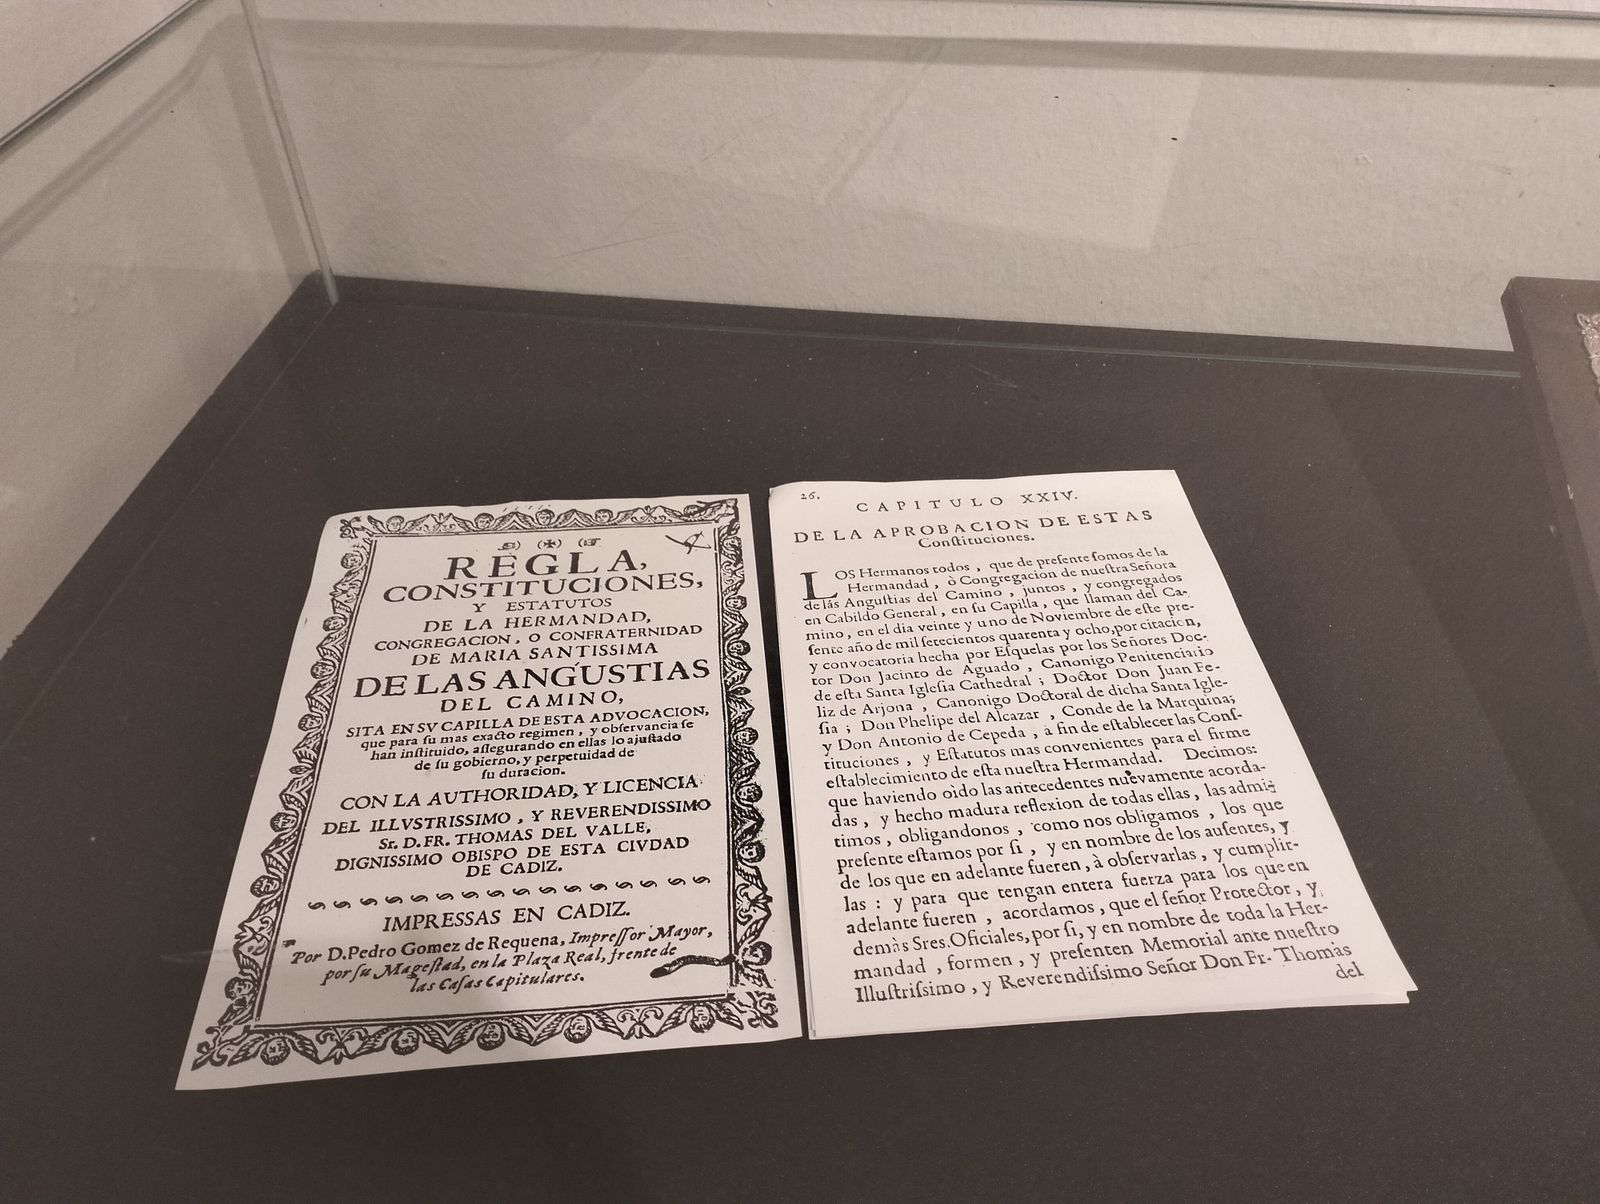 REGLA,
CONSTITUCIONES,
Y ESTATUTOS
DE LA HERMANDAD,
CONGREGACION, O CONFRATERNIDAD
DE MARIA SANTISSIMA
DE LAS ANGUSTIAS
DEL CAMINO,
SITA EN SV CAPILLA DE ESTA ADVOCACION,
que para ſu mas exacto regimen, y obſervancia ſe
han inſtituido, aſſegurando en ellas lo ajuſtado
de ſu gobierno, y perpetuidad de
ſu duracion.
CON LA AUTHORIDAD, Y LICENCIA
DEL ILLVSTRISSIMO, Y REVERENDISSIMO
Sr. D. FR. THOMAS DEL VALLE,
DIGNISSIMO OBISPO DE ESTA CIVDAD
DE CADIZ.
IMPRESSAS EN CADIZ.
Por D. Pedro Gomez de Requena, Impreſſor Mayor,
por ſu Mageſtad, en la Plaza Real, frente de
las Caſas Capitulares.
26.
CAPITULO XXIV.
DE LA APROBACION DE ESTAS
Conſtituciones.
LOS Hermanos todos, que de preſente ſomos de la
Hermandad, ò Congregacion de nueſtra Señora
de las Anguſtias del Camino, juntos, y congregados
en Cabildo General, en ſu Capilla, que llaman del Ca-
mino, en el dia veinte y uno de Noviembre de eſte pre-
ſente año de mil ſetecientos quarenta y ocho, por citacion,
y convocatoria hecha por Eſquelas por los Señores Doc-
tor Don Jacinto de Aguado, Canonigo Penitenciario
de eſta Santa Igleſia Cathedral; Doctor Don Juan Fe-
liz de Arjona, Canonigo Doctoral de dicha Santa Igle-
ſia; Don Phelipe del Alcazar, Conde de la Marquina;
y Don Antonio de Cepeda, à fin de eſtablecer las Conſ-
tituciones, y Eſtatutos mas convenientes para el firme
eſtablecimiento de eſta nueſtra Hermandad. Decimos:
que haviendo oido las antecedentes nuevamente acorda-
das, y hecho madura reflexion de todas ellas, las admi-
timos, obligandonos, como nos obligamos, los que
preſente eſtamos por ſi, y en nombre de los auſentes, y
de los que en adelante fueren, à obſervarlas, y cumplir-
las: y para que tengan entera fuerza para los que en
adelante fueren, acordamos, que el ſeñor Protector, y
demàs Sres. Oficiales, por ſi, y en nombre de toda la Her-
mandad, formen, y preſenten Memorial ante nueſtro
Illuſtriſſimo, y Reverendiſſimo Señor Don Fr. Thomàs
del